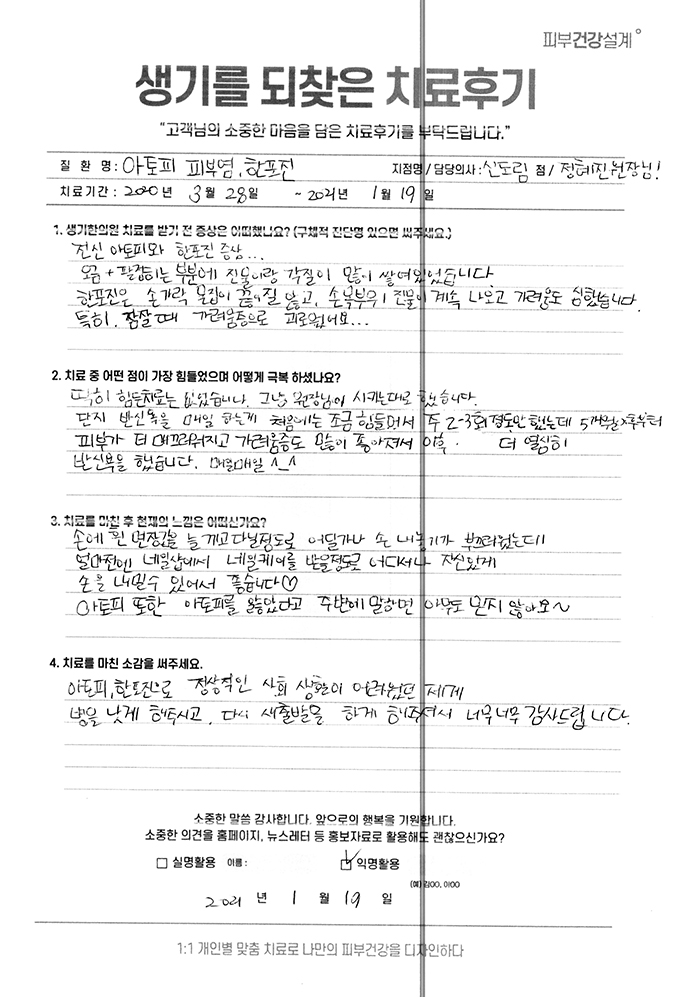 피부건강설계°
생기를 되찾은 치료후기
"고객님의 소중한 마음을 담은 치료후기를 부탁드립니다."
질 환 명 : 아토피 피부염, 한포진 지점명 / 담당의사 : 신도림 점 / 정혜진원장님!
치료기간 : 2020 년 3 월 28 일 ~ 2021 년 1 월 19 일
1. 생기한의원 치료를 받기 전 증상은 어떠했나요? (구체적 진단명 있으면 써주세요.)
전신 아토피와 한포진 증상...
오금 + 팔접히는 부분에 진물이랑 각질이 많이 쌓여있었습니다
한포진은 손가락 물집이 끊이질 않고, 손목부위 진물이 계속 나오고 가려움도 심했습니다.
특히, 잠잘때 가려움증으로 괴로웠어요...
2. 치료 중 어떤 점이 가장 힘들었으며 어떻게 극복 하셨나요?
딱히 힘든치료는 없었습니다. 그냥 원장님이 시키는대로 했습니다.
단지 반신욕을 매일 하는게 처음에는 조금 힘들어서 주 2-3회 정도만 했는데 5개월차후부터
피부가 더 매끄러워지고 가려움증도 많이 좋아져서 이후. 더 열심히
반신욕을 했습니다. 매일매일 ^_^
3. 치료를 마친 후 현재의 느낌은 어떠신가요?
손에 흰 면장갑을 늘 끼고다닐정도로 어딜가나 손 내놓기가 부끄러웠는데
얼마전엔 네일샵에서 네일케어를 받을정도로 어디서나 자신있게
손을 내밀수 있어서 좋습니다♡
아토피 또한 아토피를 앓았다고 주변에 말하면 아무도 믿지 않아요~
4. 치료를 마친 소감을 써주세요.
아토피, 한포진으로 정상적인 사회 생활이 어려웠던 저에게
병을 낫게 해주시고, 다시 새출발을 하게 해주셔서 너무너무 감사드립니다.
소중한 말씀 감사합니다. 앞으로의 행복을 기원합니다.
소중한 의견을 홈페이지, 뉴스레터 등 홍보자료로 활용해도 괜찮으신가요?
☐ 실명활용 이름 : ☑ 익명활용
(예) 김OO, 이OO
2021 년 1 월 19 일
1:1 개인별 맞춤 치료로 나만의 피부건강을 디자인하다